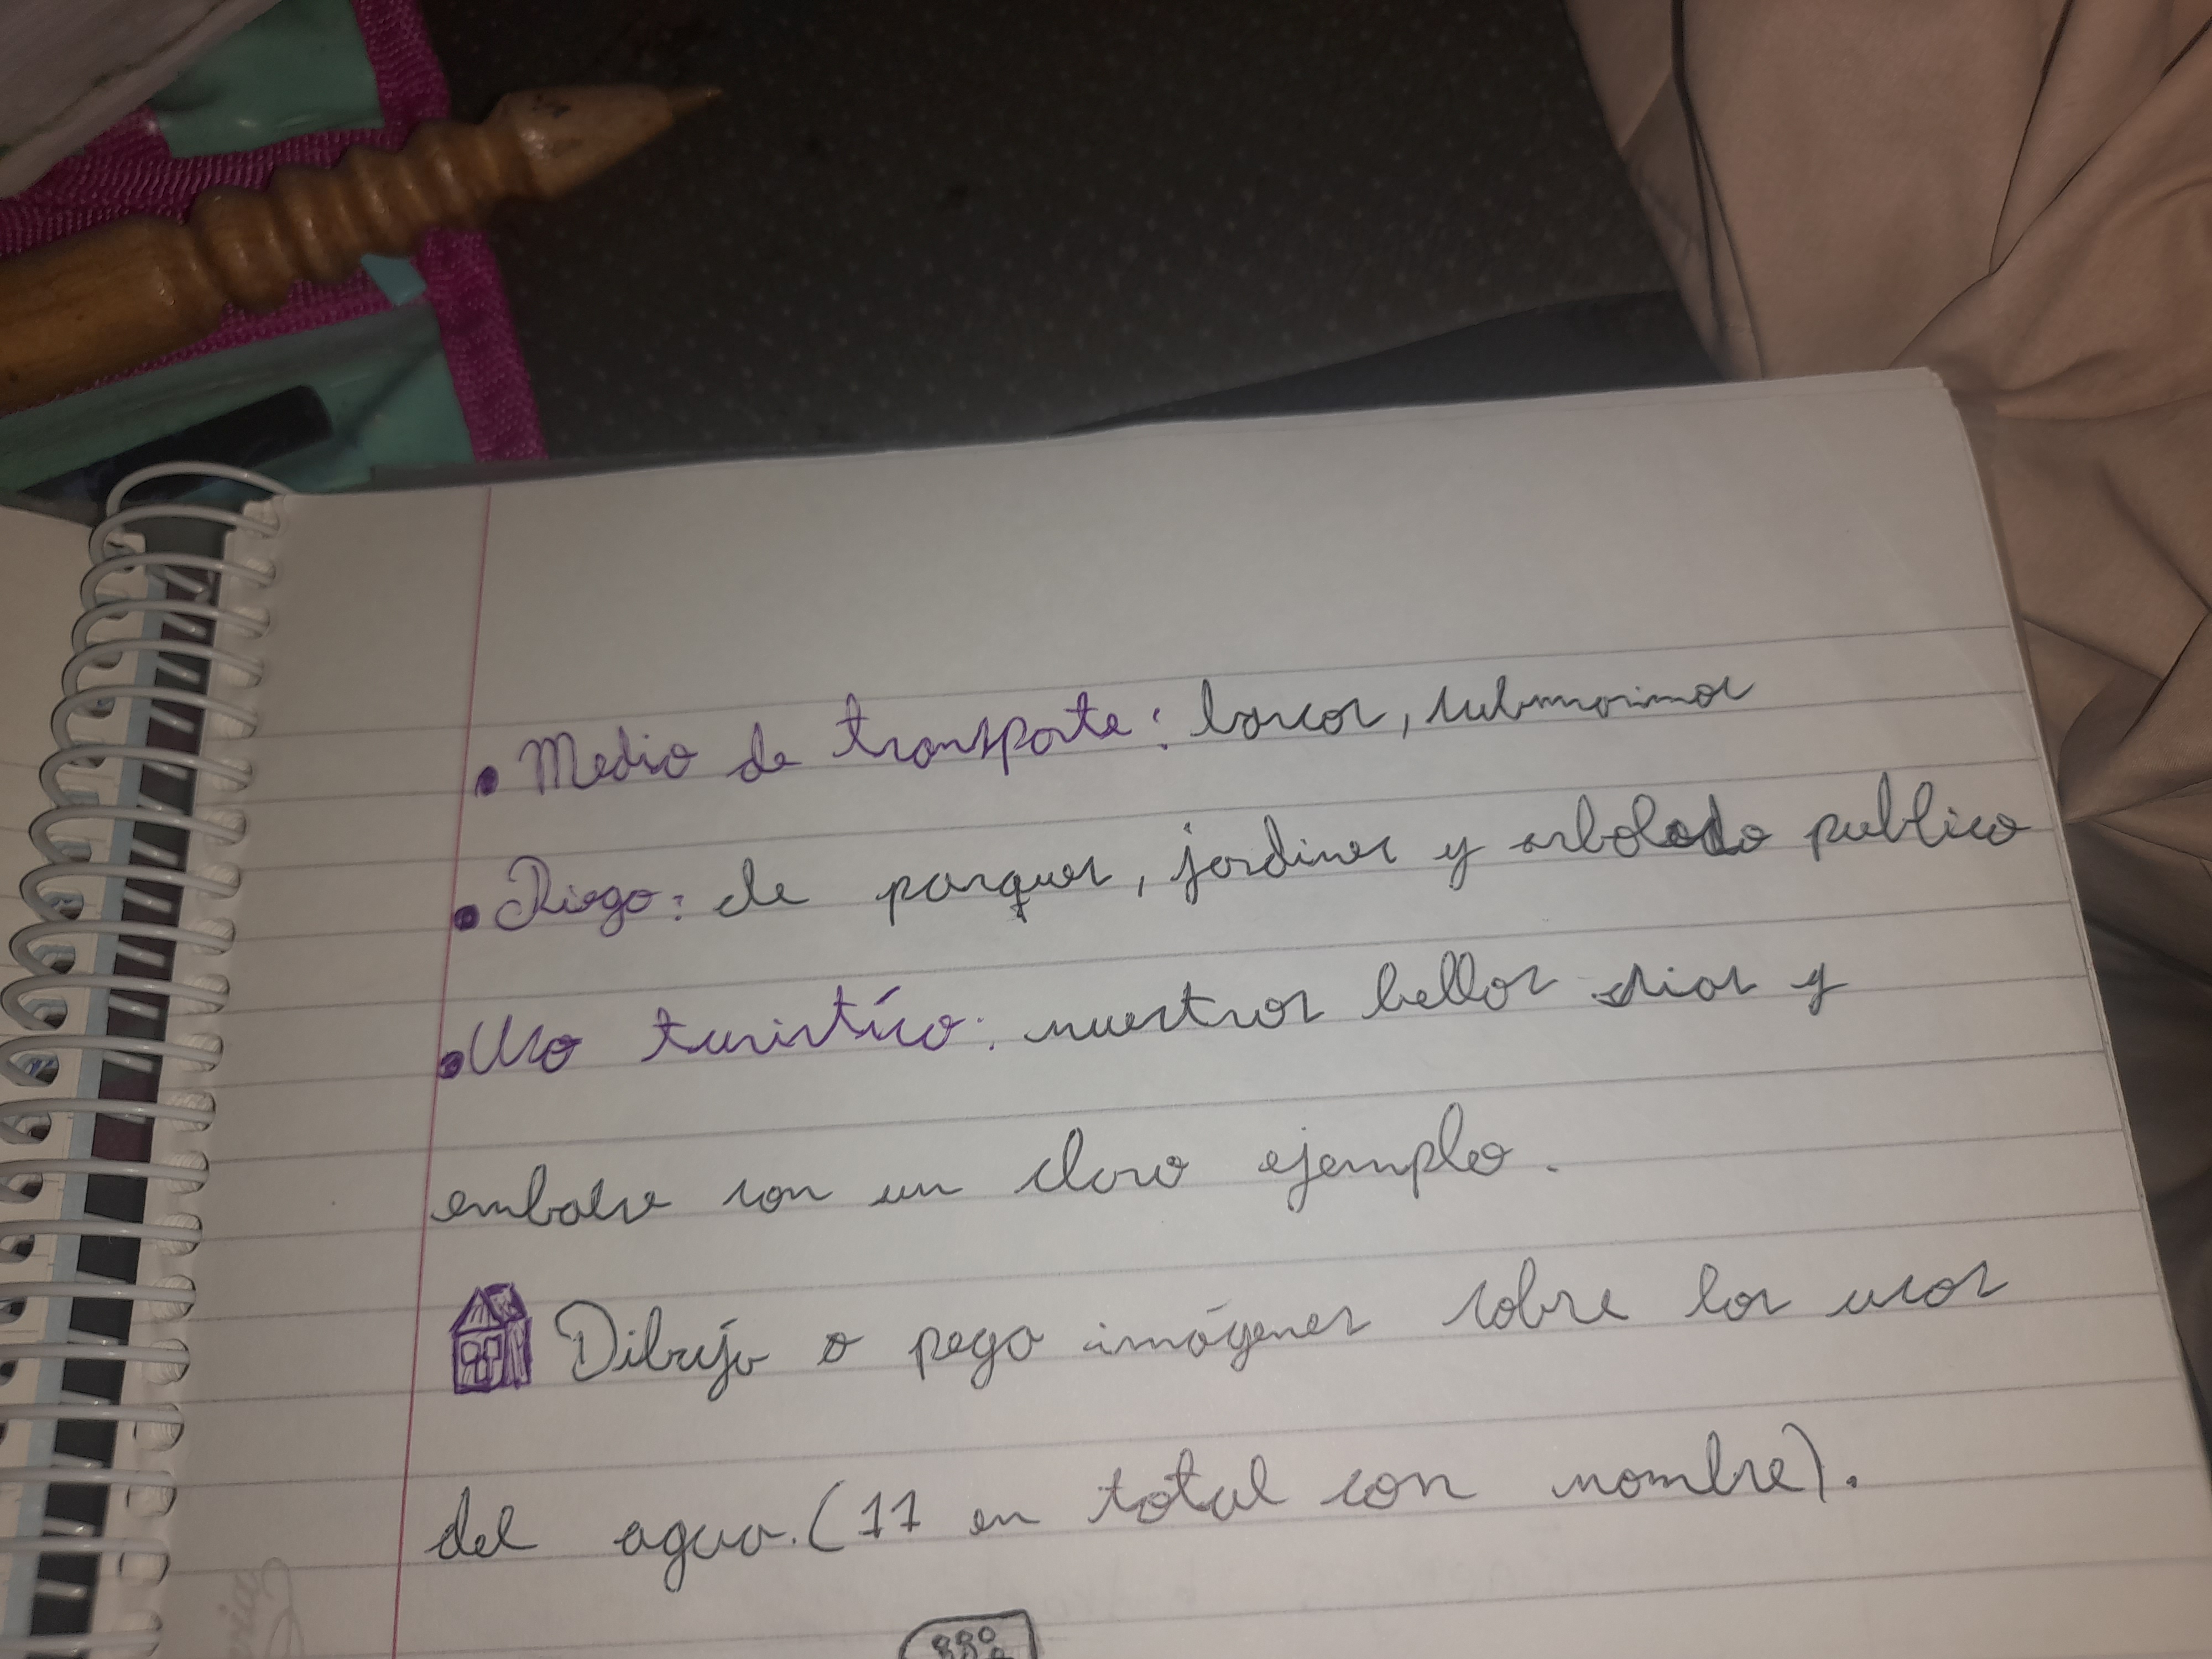 • Medio de transporte: barcos, submarinos
• Riego: de parques, jardines y arbolado publico
• Uso turistíco: nuestros bellos rios y
embalse son un claro ejemplo.
Dibujo o pego imágenes sobre los usos
del agua. (11 en total con nombre).